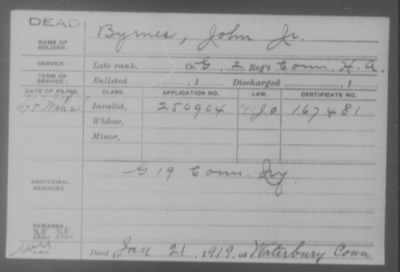 DEAD
NAME OF SOLDIER: Byrnes, John Jr.
SERVICE: Late rank, Co. G, 2 Reg't Conn H. A.
TERM OF SERVICE: Enlisted , 1 Discharged , 1
DATE OF FILING. CLASS. APPLICATION NO. LAW. CERTIFICATE NO.
Invalid, 250904 167481
Widow,
Minor,
ADDITIONAL SERVICES: G 19 Conn. Inf
REMARKS:
Died Jan 21, 1919, at Waterbury Conn.